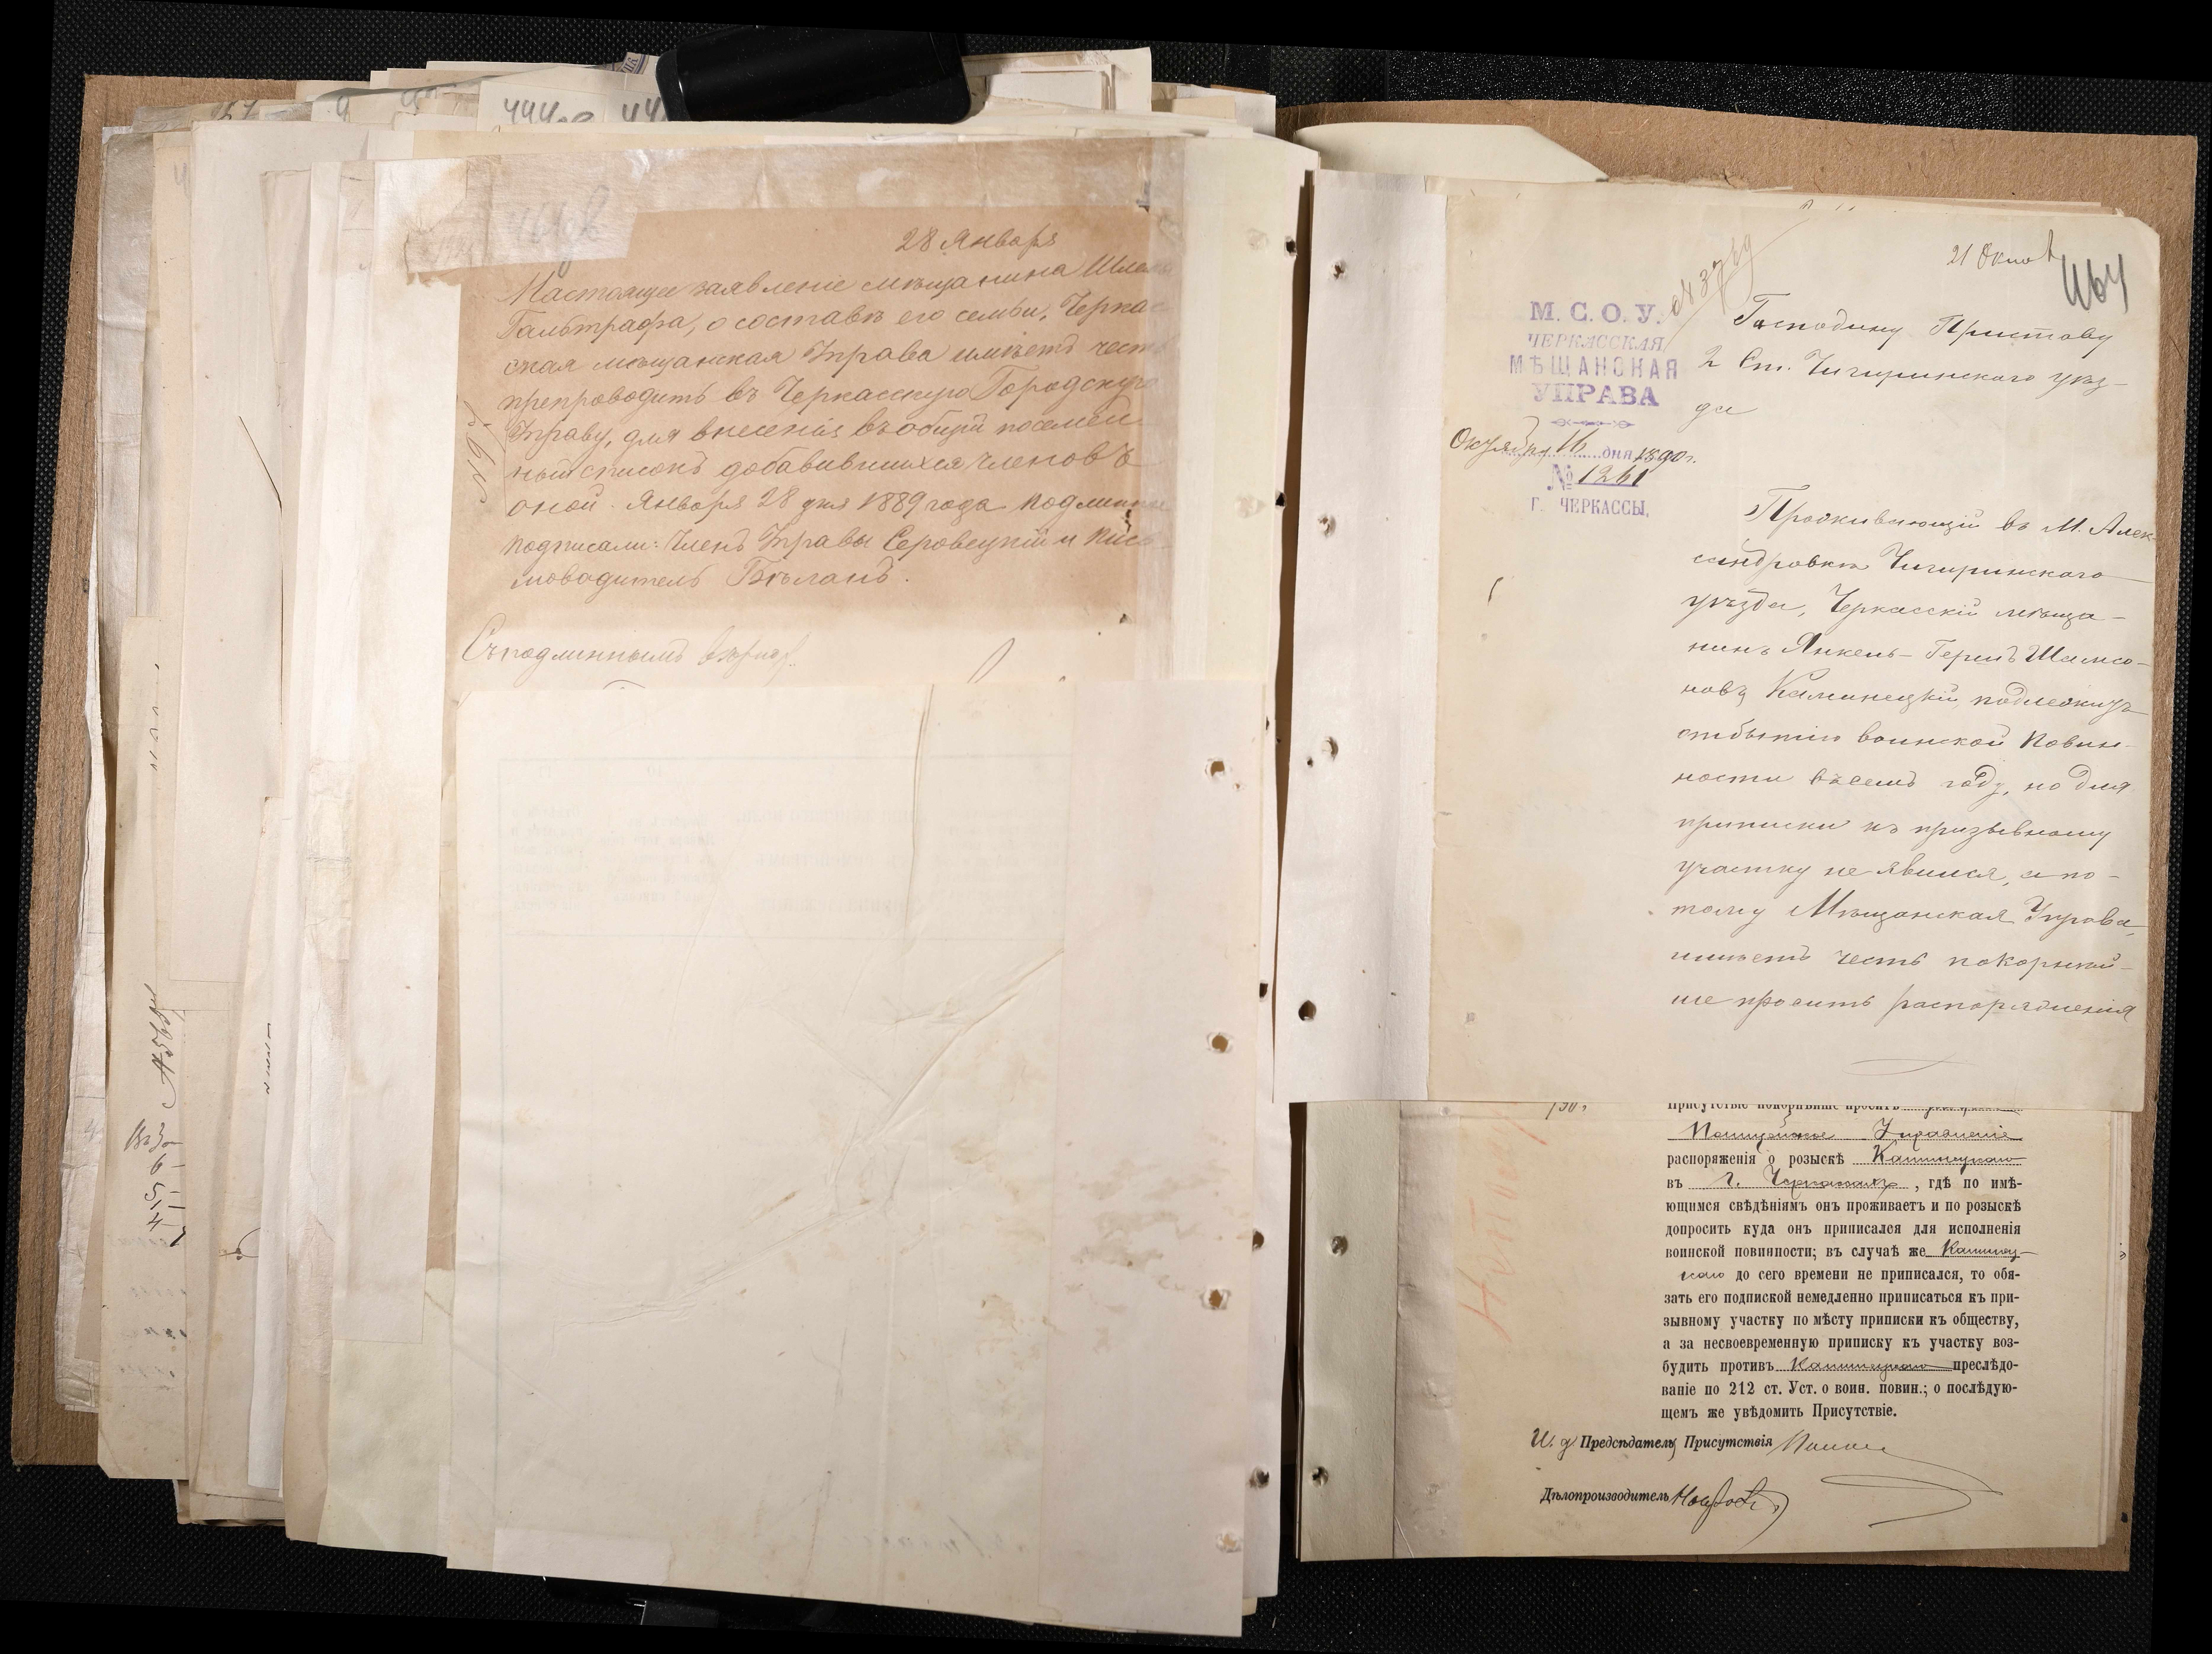 444
28 Января
Настоящее заявленіе мѣщанина
Гальтрафа, о составѣ его семьи, Черкас
ская мѣщанская Управа имѣетъ честь
препроводить въ Черкасскую Городскую
Управу, для внесенія въ общій посемей
ный списокъ добавившихся членовъ
оной. Января 28 дня 1889 года подлинное
подписали: Членъ Управы Серовецкій и Пись
моводитель Бѣланъ.
№ 61
Съ подлиннымъ вѣрно:
21 Октяб
464
М. С. О. У.
ЧЕРКАССКАЯ
МѢЩАНСКАЯ
УПРАВА
Октября 16 дня 1890 г.
№ 1261
Г. ЧЕРКАССЫ,
Господину Приставу
2 Ст. Чигиринскаго уѣз-
да
Проживающій въ М. Алек-
сандровкѣ Чигиринскаго
уѣзда, Черкасскій мѣща-
нинъ Янкель-Гершъ Шамсо-
новъ Каминецкій, подлежитъ
отбытію воинской повин-
ности въ семъ году, но для
приписки къ призывному
участку не явился, а по-
тому Мѣщанская Управа,
имѣетъ честь покорнѣй-
ше просить распоряженія
Присутствіе покорнѣйше проситъ
Полицейское Управленіе
распоряженія о розыскѣ Каминецкаго
въ г. Черкассахъ, гдѣ по имѣ-
ющимся свѣдѣніямъ онъ проживаетъ и по розыскѣ
допросить куда онъ приписался для исполненія
воинской повинности; въ случаѣ же Каминец-
каго до сего времени не приписался, то обя-
зать его подпиской немедленно приписаться къ при-
зывному участку по мѣсту приписки къ обществу,
а за несвоевременную приписку къ участку воз-
будить противъ Каминецкаго преслѣдо-
ваніе по 212 ст. Уст. о воин. повин.; о послѣдую-
щемъ же увѣдомить Присутствіе.
И. д. Предсѣдатель Присутствія
Дѣлопроизводитель